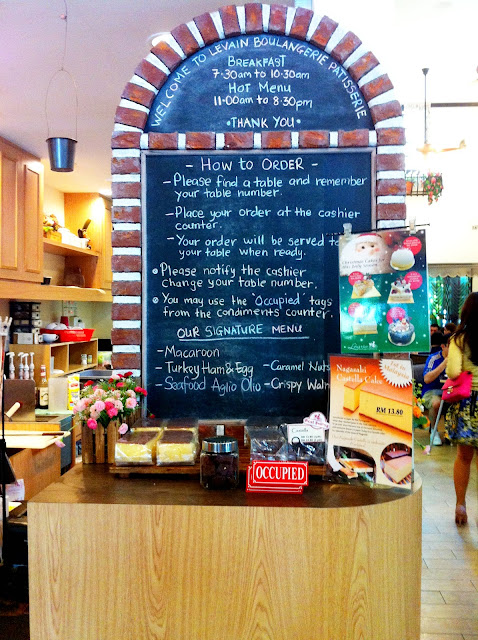 WELCOME TO LEVAIN BOULANGERIE PATISSERIE
BREAKFAST
7·30am to 10·30am
HOT MENU
11·00am to 8·30pm
*THANK YOU*
- HOW TO ORDER -
- Please find a table and remember
your table number.
- Place your order at the cashier
counter.
- Your order will be served to
your table when ready.
• Please notify the cashier
change your table number.
• You may use the "Occupied" tags
from the condiments counter.
OUR SIGNATURE MENU
- Macaroon
- Turkey Ham & Egg
- Caramel Nuts
- Seafood Aglio Olio
- Crispy Waln
Nagasaki
Castella Cake
RM 13.80
OCCUPIED